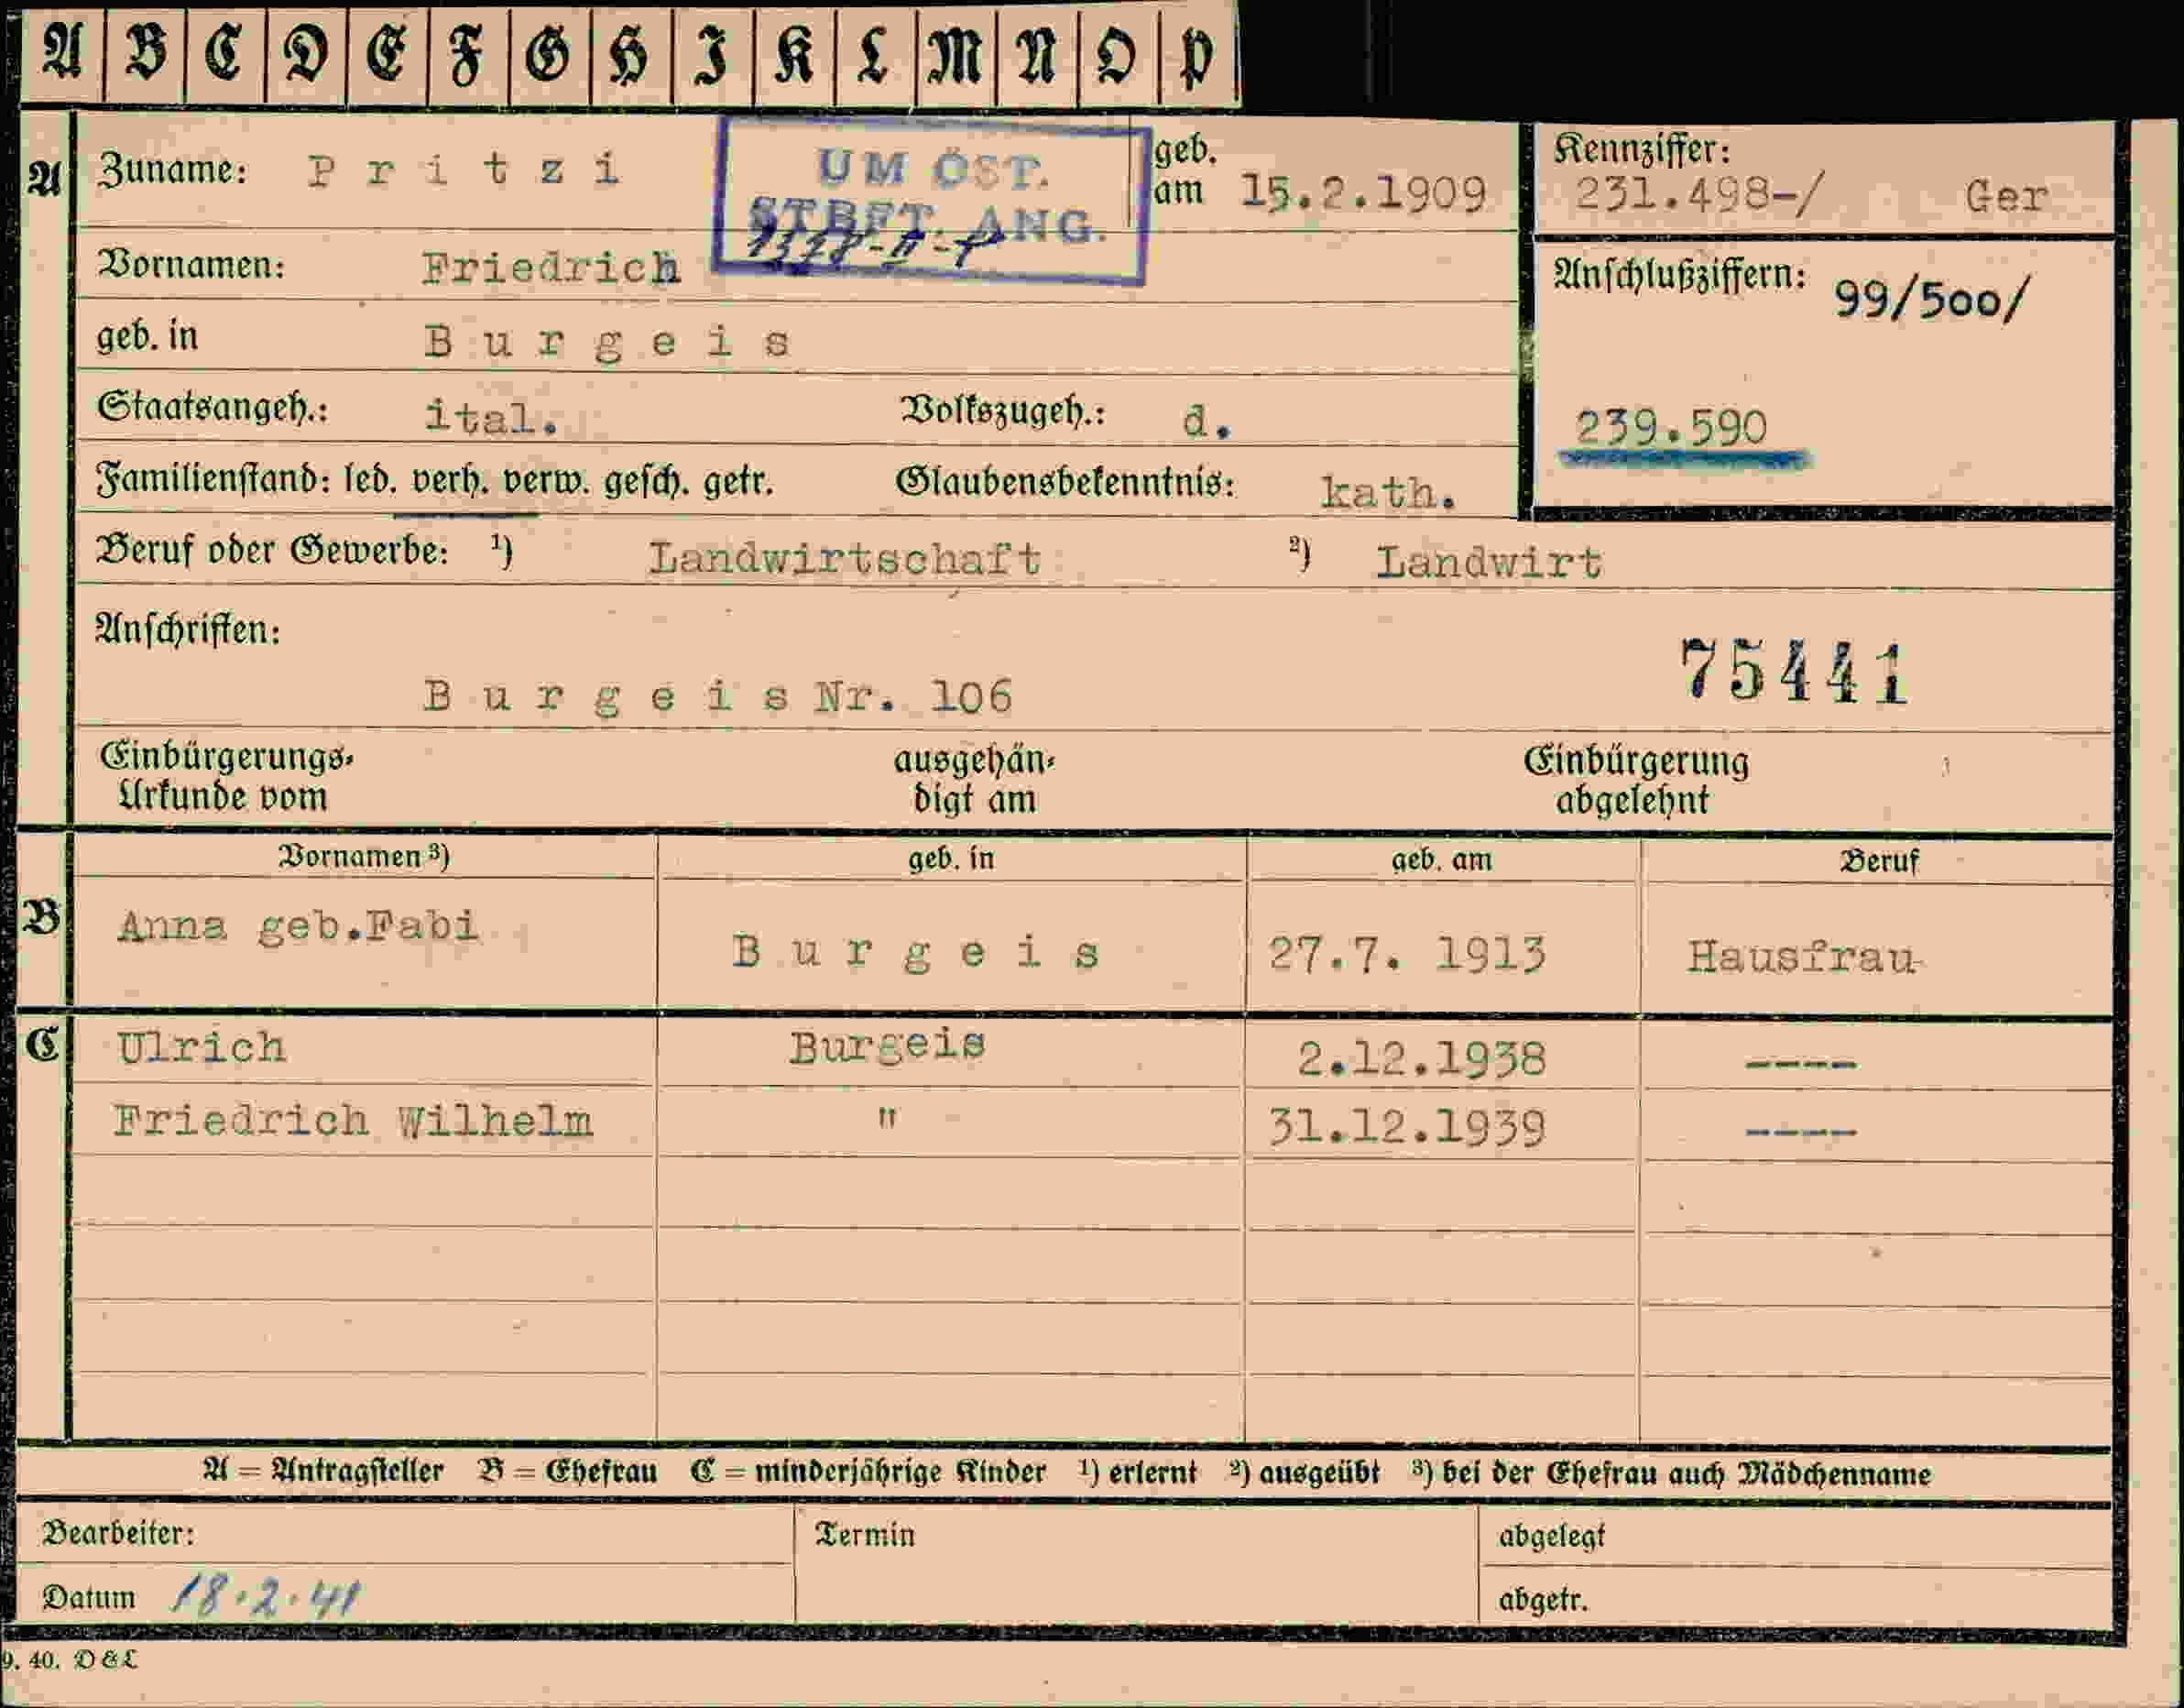 A B C D E F G H I K L M N O P
A Zuname: Pritzi geb. am 15.2.1909
UM ÖST.
STBFT. ANG.
Kennziffer:
231.498-/ Ger
Vornamen: Friedrich
Anschlußziffern: 99/500/
geb. in Burgeis
Staatsangeh.: ital. Volkszugeh.: d.
239.590
Familienstand: led. verh. verw. gesch. getr. Glaubensbekenntnis: kath.
Beruf oder Gewerbe: 1) Landwirtschaft 2) Landwirt
Anschriften:
Burgeis Nr. 106 75441
Einbürgerungs- Urkunde vom ausgehän- digt am Einbürgerung abgelehnt
Vornamen 3) geb. in geb. am Beruf
B Anna geb.Fabi Burgeis 27.7. 1913 Hausfrau
C Ulrich Burgeis 2.12.1938 ----
Friedrich Wilhelm " 31.12.1939 ----
A = Antragsteller B = Ehefrau C = minderjährige Kinder 1) erlernt 2) ausgeübt 3) bei der Ehefrau auch Mädchenname
Bearbeiter: Termin abgelegt
Datum 18.2.41 abgetr.
9. 40. D&L